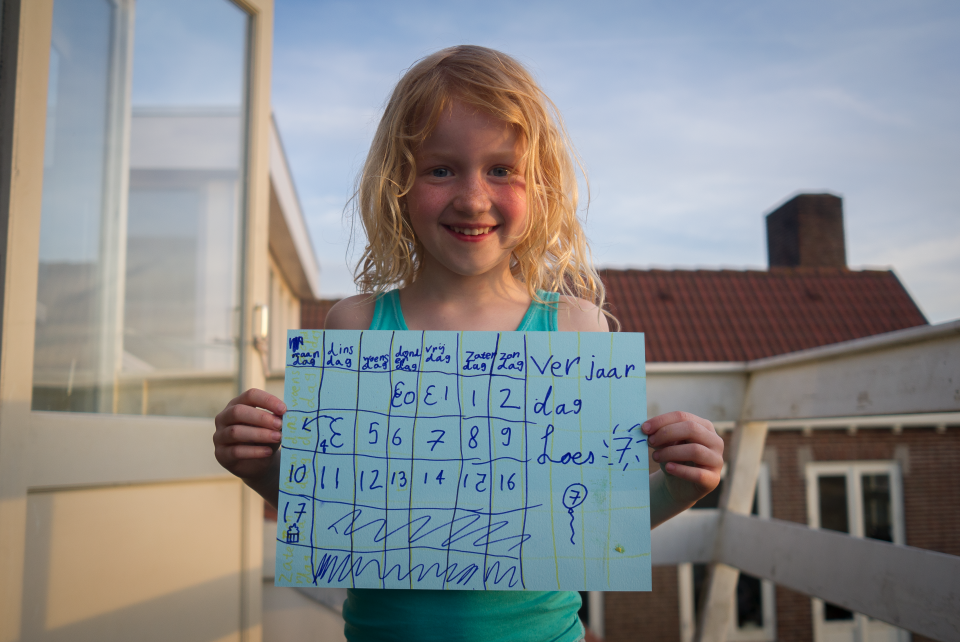 maan dins woens dond vrij zater zon
dag dag dag dag dag dag dag
30 31 1 2
4 3 5 6 7 8 9
10 11 12 13 14 15 16
17
Ver jaar
dag
Loes 7
7